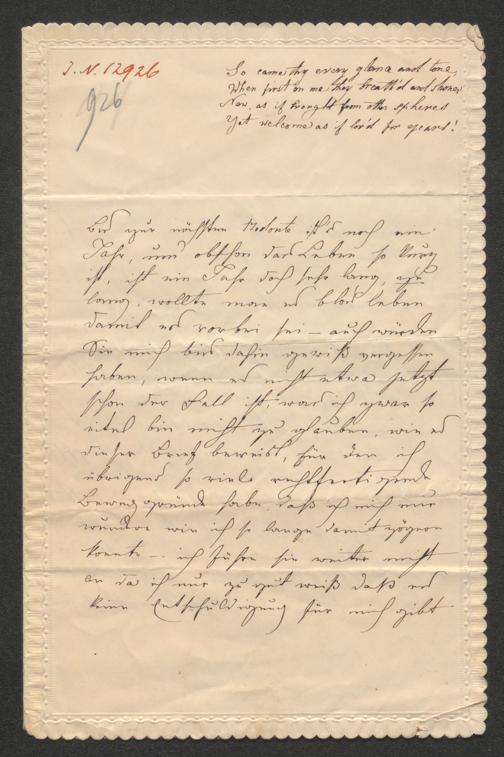 J. N. 12926
926
So came thy every glance and tone,
When first on me they breath'd and shone;
New, as if brought from other spheres
Yet welcome as if lov'd for years!
Bis zur nächsten Redoute ist's noch ein
Jahr, und obschon das Leben so kurz
ist, ist ein Jahr doch sehr lang, zu
lang, wollte man es blos leben
damit es vorbei sei – auch würden
Sie mich bis dahin gewiß vergessen
haben, wenn es nicht etwa jetzt
schon der Fall ist, was ich zwar so
eitel bin nicht zu glauben, wie es
dieser Brief beweist, für den ich
übrigens so viele rechtfertigende
Beweggründe habe, daß ich mich nur
wundre wie ich so lange damit zögern
konnte – ich führe sie weiter nicht
an da ich nur zu gut weiß daß es
keine Entschuldigung für mich gibt